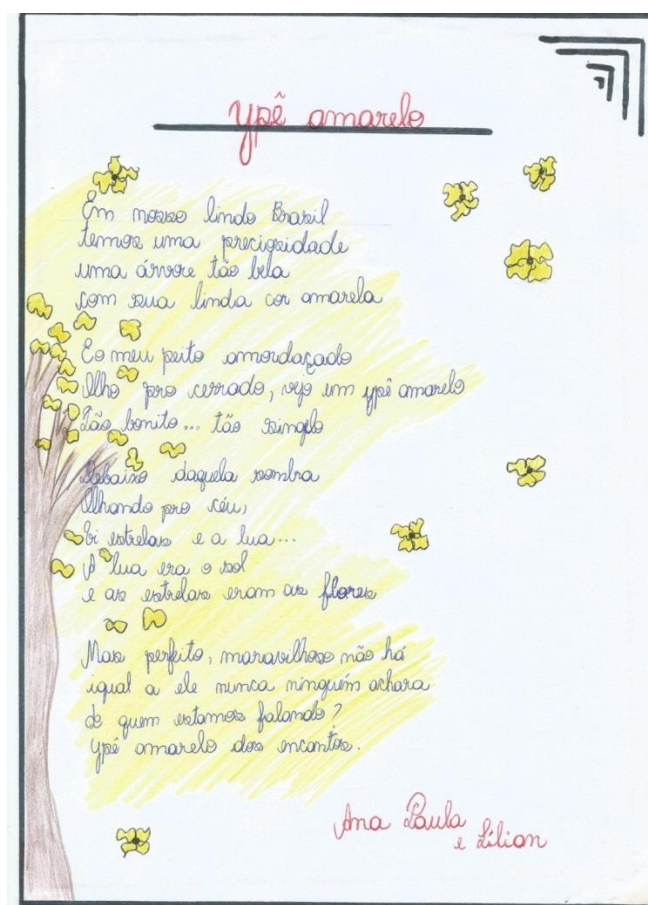 Ypê amarelo
Em nosso lindo Brasil
temos uma preciosidade
uma árvore tão bela
com sua linda cor amarela
Eo meu peito amordaçado
Olho pro cerrado, vejo um ypê amarelo
Tão bonito... tão singelo
Debaixo daquela sombra
Olhando pro céu,
Vi estrelas e a lua...
A lua era o sol
e as estrelas eram as flores
Mas perfeito, maravilhoso não há
igual a ele nunca ninguém achara
de quem estamos falando?
Ypê amarelo dos encantos.
Ana Paula
e Lílian